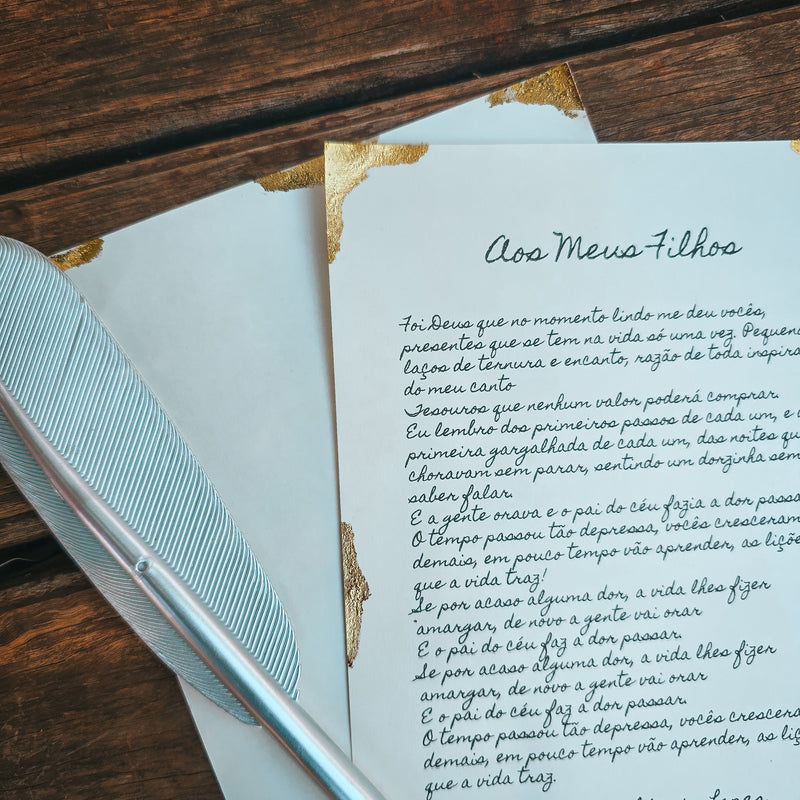 Aos Meus Filhos
Foi Deus que no momento lindo me deu vocês,
presentes que se tem na vida só uma vez. Pequeno
laços de ternura e encanto, razão de toda inspira
do meu canto
Tesouros que nenhum valor poderá comprar.
Eu lembro dos primeiros passos de cada um, e a
primeira gargalhada de cada um, das noites qu
choravam sem parar, sentindo um dorzinha sem
saber falar.
E a gente orava e o pai do céu fazia a dor passa
O tempo passou tão depressa, vocês cresceram
demais, em pouco tempo vão aprender, as liçõe
que a vida traz!
Se por acaso alguma dor, a vida lhes fizer
amargar, de novo a gente vai orar
E o pai do céu faz a dor passar.
Se por acaso alguma dor, a vida lhes fizer
amargar, de novo a gente vai orar
E o pai do céu faz a dor passar.
O tempo passou tão depressa, vocês crescera
demais, em pouco tempo vão aprender, as liç
que a vida traz.